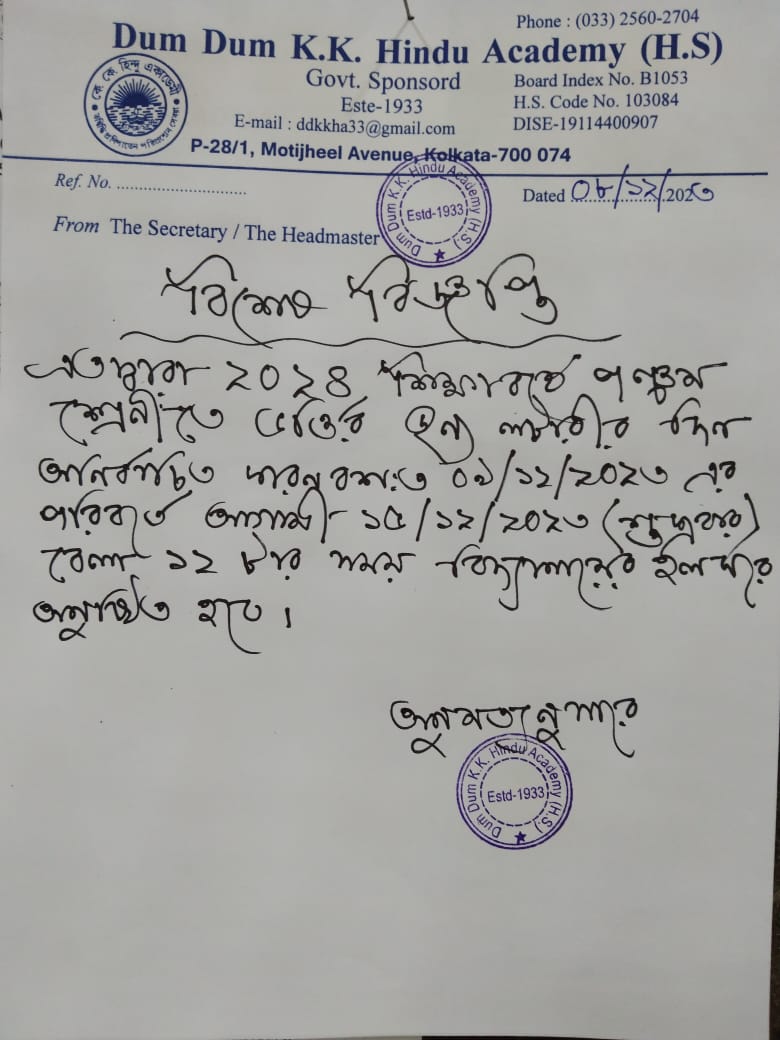 Phone : (033) 2560-2704
Dum Dum K.K. Hindu Academy (H.S)
Govt. Sponsord
Board Index No. B1053
Este-1933
H.S. Code No. 103084
E-mail : ddkkha33@gmail.com
DISE-19114400907
P-28/1, Motijheel Avenue, Kolkata-700 074
Ref. No. ............................
Dated ০৮/১২/২০২৩
From The Secretary / The Headmaster
Dum Dum K.K. Hindu Academy (H.S.)
Estd-1933
বিশেষ বিজ্ঞপ্তি
এতদ্বারা ২০২৪ শিক্ষাবর্ষে পঞ্চম
শ্রেণীতে ভর্তির জন্য লটারীর দিন
অনিবার্য কারণবশতঃ ০৯/১২/২০২৩ এর
পরিবর্তে আগামী ১৫/১২/২০২৩ (শুক্রবার)
বেলা ১২ টার সময় বিদ্যালয়ের হলঘরে
অনুষ্ঠিত হবে।
অনুমত্যনুসারে
Dum Dum K.K. Hindu Academy (H.S.)
Estd-1933